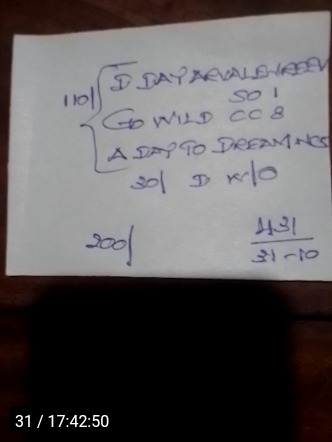 110/ D DAY
SO 1
GO WILD CC 8
A DAY TO DREAM
30/ D W/O
200/ 431
31-10
31 / 17:42:50